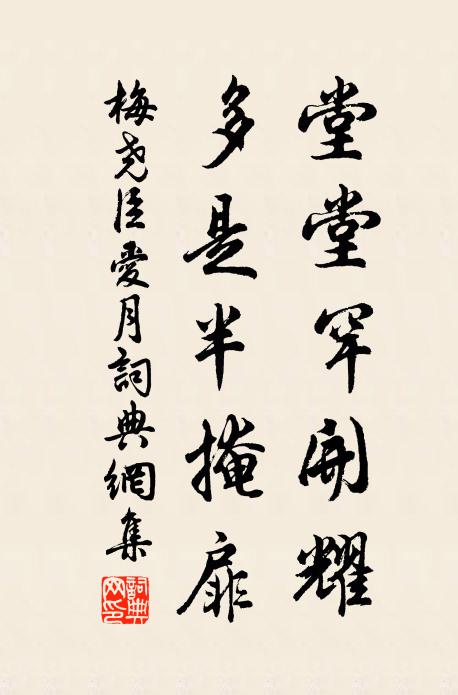 堂堂罕開耀
多是半掩扉
梅堯臣愛月詞典網集
詞典網印